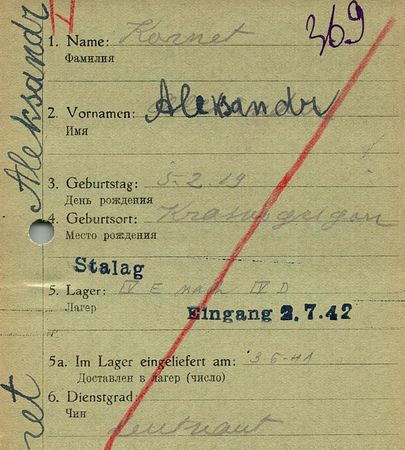 Aleksandr
369
1. Name: Kornet
Фамилия
2. Vornamen: Aleksandr
Имя
3. Geburtstag: 5.2.19
День рождения
4. Geburtsort:
Место рождения
Stalag
5. Lager: IV E nach IV D
Лагер
Eingang 2.7.42
5a. Im Lager eingeliefert am: 3-6-41
Доставлен в лагер (число)
6. Dienstgrad:
Чин
Leutnant